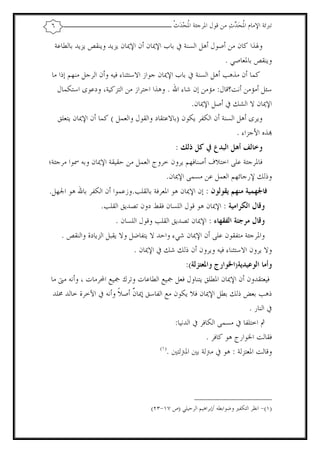 تبرئة الإمام الْمُحَدِّثِ من قول المرجئة الْمُحْدَثِ
٦
ولهذا كان من أصول أهل السنة في باب الإيمان أن الإيمان يزيد وينقص يزيد بالطاعة
وينقص بالمعاصي .
كما أن مذهب أهل السنة في باب الإيمان جواز الاستثناء فيه وأن الرجل منهم إذا ما
سئل أمؤمن أنت؟قال: مؤمن إن شاء الله . وهذا احتراز من التزكية، ودعوى استكمال
الإيمان لا الشك في أصل الإيمان.
ويرى أهل السنة أن الكفر يكون (بالاعتقاد والقول والعمل ) كما أن الإيمان يتعلق
بهذه الأجزاء .
وخالف أهل البدع في كل ذلك :
فالمرجئة على اختلاف أصنافهم يرون خروج العمل من حقيقة الإيمان وبه سموا مرجئة؛
وذلك لإرجائهم العمل عن مسمى الإيمان.
فالجهمية منهم يقولون : إن الإيمان هو المعرفة بالقلب.وزعموا أن الكفر بالله هو الجهل.
وقال الكرامية : إن الإيمان هو قول اللسان فقط دون تصديق القلب.
وقال مرجئة الفقهاء : الإيمان تصديق القلب وقول اللسان .
والمرجئة متفقون على أن الإيمان شيء واحد لا يتفاضل ولا يقبل الزيادة والنقص .
ولا يرون الاستثناء فيه ويرون أن ذلك شك في الإيمان .
وأما الوعيدية(الخوارج والمعتزلة):
فيعتقدون أن الإيمان المطلق يتناول فعل جميع الطاعات وترك جميع المحرمات ، وأنه متى ما
ذهب بعض ذلك بطل الإيمان فلا يكون مع الفاسق إيمانٌ أصلاً وأنه في الآخرة خالد مخلد
في النار .
ثم اختلفا في مسمى الكافر في الدنيا:
فقالت الخوارج هو كافر .
وقالت المعتزلة : هو في منزلة بين المنزلتين .(١)
(١)- انظر التكفير وضوابطه لإبراهيم الرحيلي (ص ١٧-٢٣)